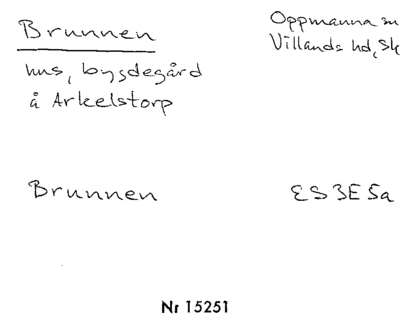 Brunnen
Oppmanna sn
Villands hd, Sk
hus, bygdegård
å Arkelstorp
Brunnen
ES 3E 5a
Nr 15251